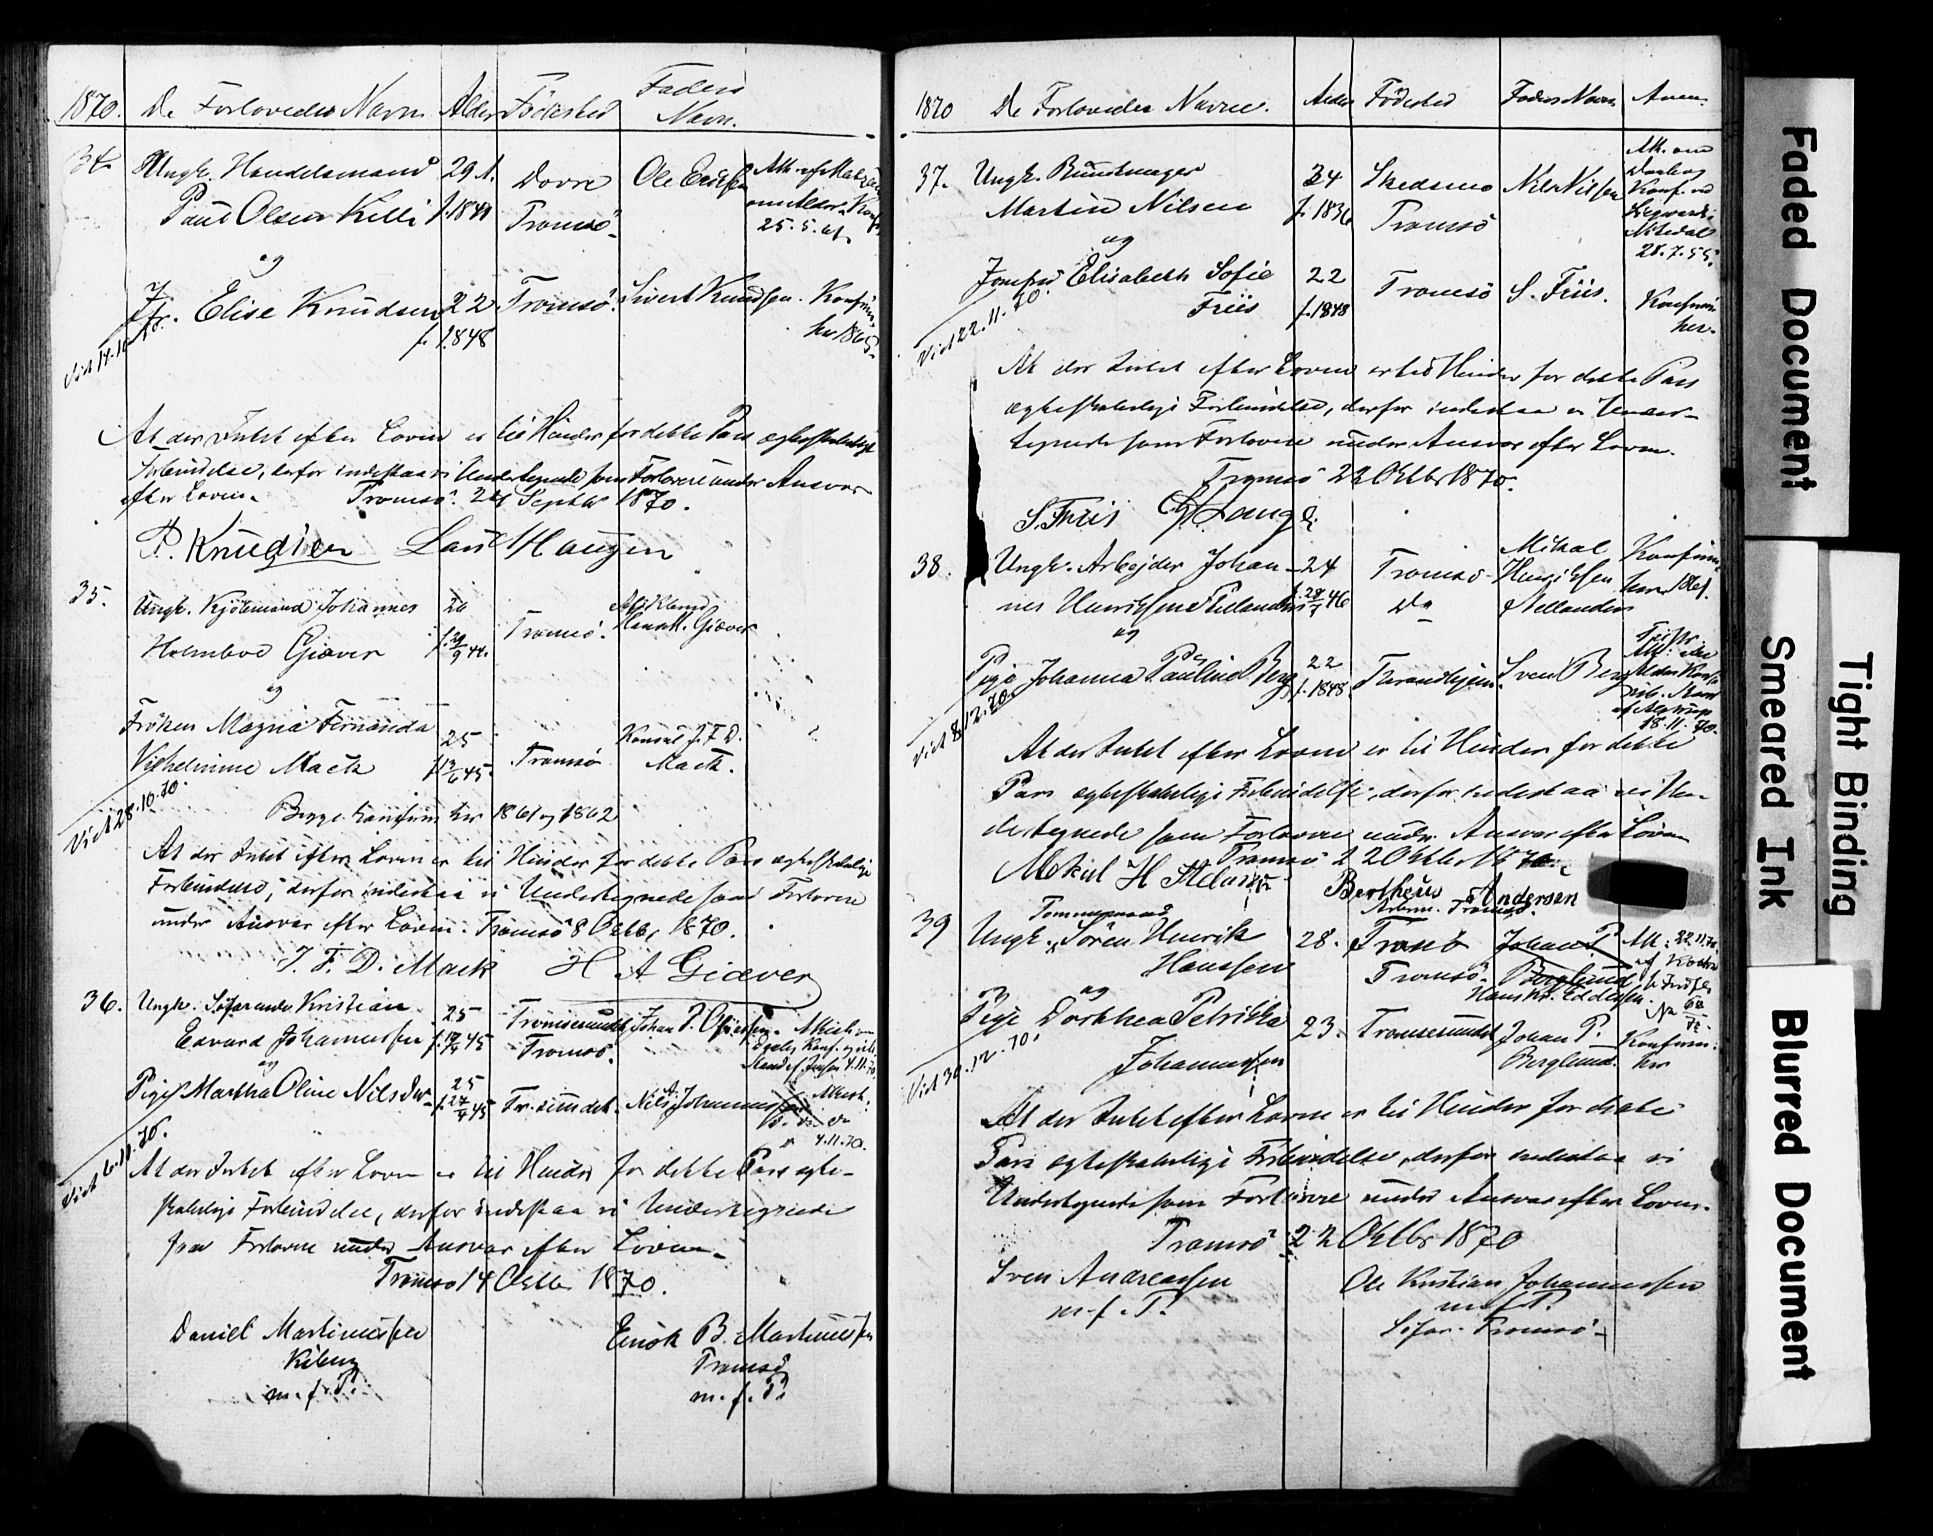 1870. De Forlovedes Navn Alder Fødested Faders Navn.
34. Ungk. Handelsmand 29 A. Dovre Ole Ericksen Att. af
Paul Olsen Killi f. 1841 Tromsø
25.5.
og
Jfr. Elise Knudsen 22 Tromsø. Sivert Knudsen. Konfirm.
f. 1848 her 1865.
Viet 14.10.70.
At der Intet efter Loven er til Hinder for dette Pars ægteskabelige
Forbindelse, derfor indestaa vi Undertegnede som Forlovere under Ansvar
efter Loven. Tromsø. 24 Septbr 1870.
P. Knudsen Haugen
35. Ungk. Kjøbmand Johannes 26 Tromsø.
Holmboe Giæver f. 29/9 44. Giæver
og
Frøken Magna Fernanda 25 Konsul J. F. D.
Vilhelmine Mack f. 13/6 45. Tromsø Mack.
Viet 28.10.70.
Begge konfirm. her 1861 og 1862
At der Intet efter Loven er til Hinder for dette Pars ægteskabelige
Forbindelse, derfor indestaa vi Undertegnede som Forlovere
under Ansvar efter Loven. Tromsø 8 Octbr 1870.
J. F. D. Mack H A Giæver
36. Ungk. Søfarende Kristian 25 Tromsøsundet Johan P.
Edvard Johannessen f. 45 Tromsø.
og
Pige Martha Oline Nilsdtr. 25 Tr. sundet. Nils Johannessen Attest.
f. 27/4 45 4.11.70.
Viet 6.11.70.
At der Intet efter Loven er til Hinder for dette Pars ægte-
skabelige Forbindelse, derfor indestaa vi Undertegnede
som Forlovere under Ansvar efter Loven.
Tromsø 14 Octbr 1870.
Daniel Martinussen Enok B. Martinussen
Tromsø
m. f. P. m. f. P.
1870 De Forlovedes Navne. Alder Fødested Faders Navn Anm.
37. Ungk. Buntmager 34 Skedsmo Nils Nilsen Att. om
Martin Nilsen f. 1836 Tromsø
Nitedal
28.7.55.
og
Jomfru Elisabeth Sofie 22 Tromsø S. Friis. Konfirm.
Friis f. 1848 her.
Viet 22.11.70.
At der Intet efter Loven er til Hinder for dette Pars
ægteskabelige Forbindelse, derfor indestaa vi Under-
tegnede som Forlovere under Ansvar efter Loven.
Tromsø 22 Octbr 1870.
S. Friis Lange
38. Ungk. Arbejder Johan- 24 Tromsø Mikal Konfirm.
nes Henriksen Stellander f. 46 Do Henriksen her 1861.
Stellander
og
Pige Johanna Pauline Berg 22 Throndhjem. Sven Berg
f. 1848.
18.11.70.
Viet 8.12.70.
At der Intet efter Loven er til Hinder for dette
Pars ægteskabelige Forbindelse, derfor indestaa vi Un-
dertegnede som Forlovere under Ansvar efter Loven
Tromsø 22 Octbr 1870.
Mikal H Bertheus Andersen
Arbm. Tromsø.
39 Ungk. Tømmermand Søren Henrik 28. Tromsø Johan P. Att. 22.11.70
Hanssen Tromsø Berglund
Hans
og
Pige Dorthea Petrikka 23. Tromsøsundet Johan P. Konfirm.
Johannessen Berglund. her
Viet 30.12.70.
At der Intet efter Loven er til Hinder for dette
Pars ægteskabelige Forbindelse, derfor indestaa vi
Undertegnede som Forlovere under Ansvar efter Loven.
Tromsø 22 Octbr 1870
Sven Andreassen Ole Kristian Johannessen
m. f. P. m. f. P.
Søfar. Tromsø
Faded Document
Smeared Ink
Tight Binding
Blurred Document